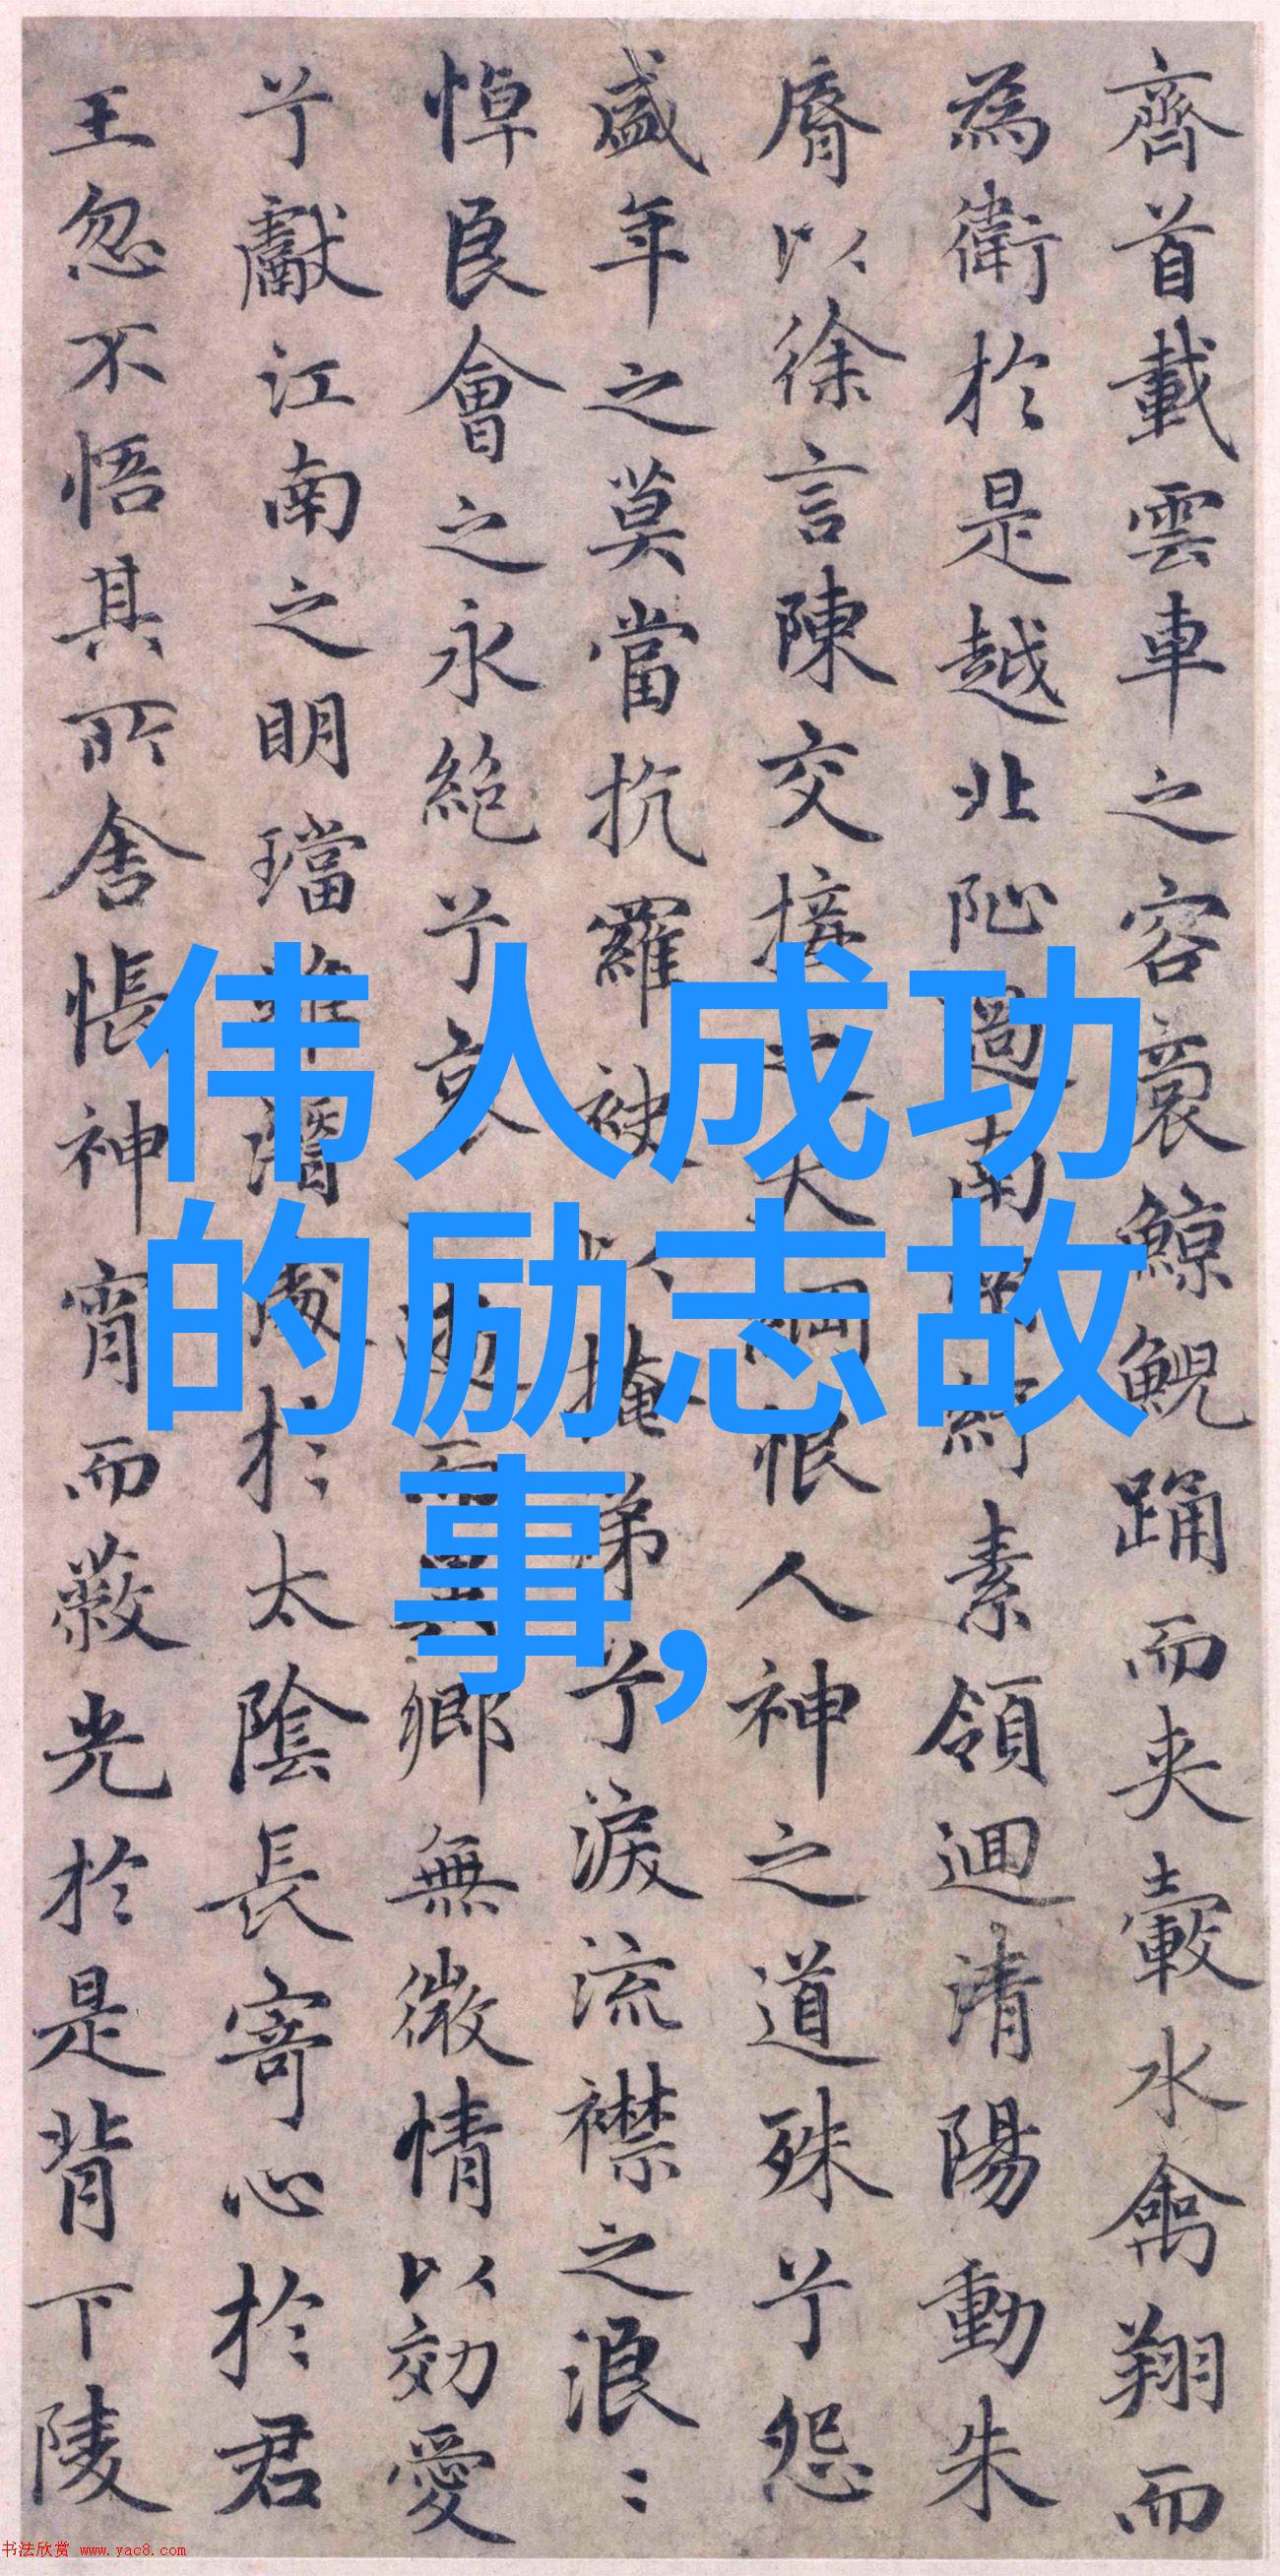 齊首載雲車之容裔鯨鯢踊而夾轂水禽翔而
為衛於是越北沚過南岡紆素領迴清陽動朱
脣以徐言陳交接之大綱恨人神之道殊兮怨
盛年之莫當抗羅袂以掩涕兮淚流襟之浪〻
悼良會之永絕兮哀一逝而異鄉無微情以効愛
兮獻江南之明璫雖潛處於太陰長寄心於君
王忽不悟其所舍悵神宵而蔽光於是背下陵
伟人成功
的励志故
事,
书法欣赏 www.yac8.com